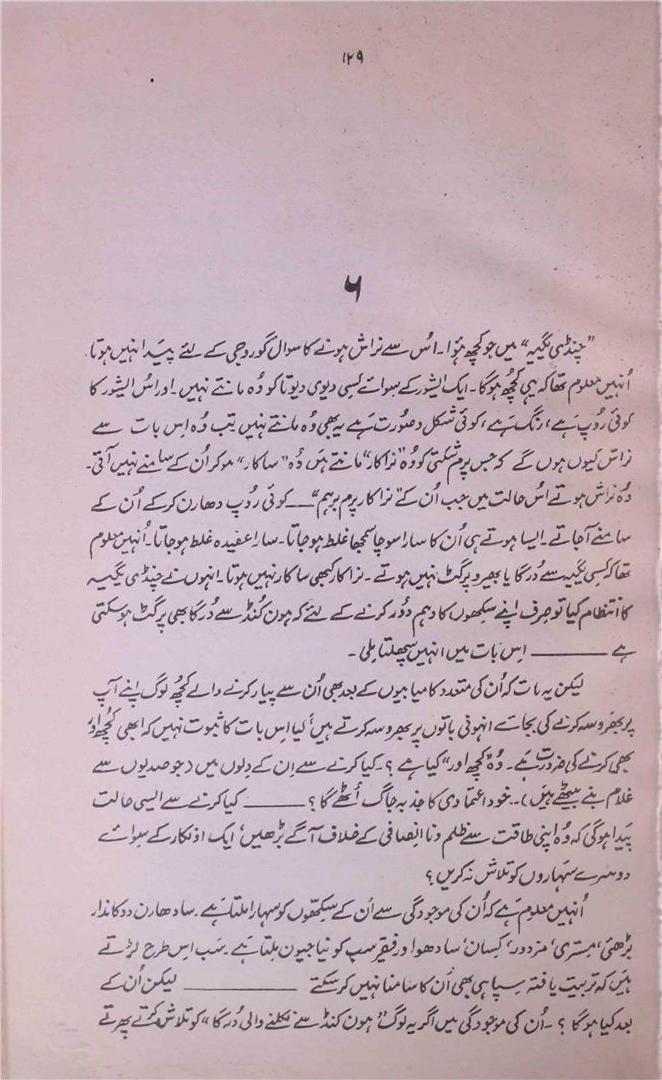 ۱۲۹
۶
”چنڈی یگیہ“ میں جو کچھ ہؤا۔ اُس سے نراش ہونے کا سوال گوروجی کے لئے پیدا نہیں ہوتا۔
اُنہیں معلوم تھا کہ یہی کچھ ہوگا۔ ایک ایشور کے سوائے کسی دیوی دیوتا کو وُہ مانتے نہیں۔ اور اُس ایشور کا
کوئی رُوپ ہے، رنگ ہے، کوئی شکل و صُورت ہے یہ بھی وُہ مانتے نہیں تب وُہ اِس بات سے
نراش کیوں ہوں گے کہ جس پرم شکتی کو وُہ ”نراکار“ مانتے ہیں وُہ ”ساکار“ ہو کر اُن کے سامنے نہیں آتی۔
وُہ نراش ہوتے اُس حالت میں جب اُن کے ”نراکار پرم برہم“ ــــ کوئی رُوپ دھارن کرکے اُن کے
سامنے آجاتے۔ ایسا ہوتے ہی اُن کا سارا سوچا سمجھا غلط ہو جاتا۔ سارا عقیدہ غلط ہو جاتا۔ اُنہیں معلوم
تھا کہ کسی یگیہ سے دُرگا یا بھیرو پرگٹ نہیں ہوتے۔ نراکار کبھی ساکار نہیں ہوتا۔ انہوں نے چنڈی یگیہ
کا انتظام کیا تو صِرف اپنے سکھوں کا وہم دُور کرنے کے لئے کہ ہون کُنڈ سے دُرگا بھی پرگٹ ہو سکتی
ہے ــــــــ اِس بات میں انہیں سپھلتا ملی۔
لیکن یہ بات کہ اُن کی متعدد کامیابیوں کے بعد بھی اُن سے پیار کرنے والے کُچھ لوگ اپنے آپ
پر بھروسہ کرنے کی بجائے انہونی باتوں پر بھروسہ کرتے ہیں، کیا اس بات کا ثبوت نہیں کہ ابھی کُچھ اور
بھی کرنے کی ضرورت ہے۔ وُہ ”کچھ اور“ کیا ہے؟۔ کیا کرنے سے اِن کے دِلوں میں (جو صدیوں سے
غلام بنے بیٹھے ہیں)۔ خود اعتمادی کا جذبہ جاگ اُٹھے گا؟ ــــــــ کیا کرنے سے ایسی حالت
پیدا ہوگی کہ وُہ اپنی طاقت سے ظلم و ناانصافی کے خلاف آگے بڑھیں، ایک اونکار کے سوائے
دوسرے سہاروں کو تلاش نہ کریں؟
اُنہیں معلوم ہے کہ اُن کی موجودگی سے اُن کے سکھوں کو سہارا ملتا ہے۔ سادھارن دوکاندار
بڑھئی، مستری، مزدور، کسان، سادھو اور فقیر سب کو نیا جیون ملتا ہے۔ سب اس طرح لڑتے
ہیں کہ تربیت یافتہ سپاہی بھی اُن کا سامنا نہیں کر سکتے ــــــــــــ لیکن اُن کے
بعد کیا ہوگا؟۔ اُن کی موجودگی میں اگر یہ لوگ ”ہون کُنڈ سے نکلنے والی دُرگا“ کو تلاش کرتے پھرتے